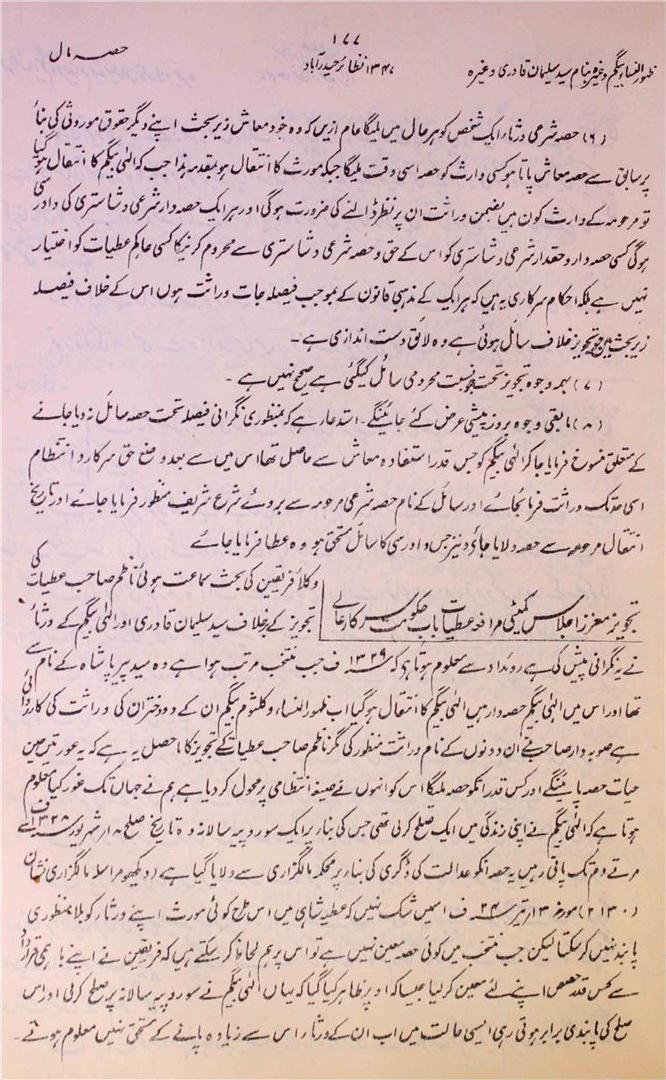 ۱۷۷
حصہ مال
۱۳۴۷ نظائر حیدرآباد
ظہور النساء بیگم وغیرہ بنام سید سلیمان قادری وغیرہ
(۶) حصہ شرعی ورثاء ایک شخص کو ہر حال میں ملیگا عام ازیں کہ وہ خود معاش زیر بحث اپنے دیگر حقوق موروثی کی بناء
پر سابق سے حصہ معاش پاتا ہو کسی وارث کو حصہ اسی وقت ملیگا جبکہ مورث کا انتقال ہو بمقدمہ ہذا جب کہ الٰہی بیگم کا انتقال ہو گیا
تو مرحومہ کے وارث کون ہیں بضمن وراثت ان پر نظر ڈالنے کی ضرورت ہوگی اور ہر ایک حصہ دار شرعی و شاستری کی دادرسی
ہوگی کسی حصہ دار و حقدار شرعی و شاستری کو اس کے حق و حصہ شرعی و شاستری سے محروم کرنیکا کسی حاکم عطیات کو اختیار
نہیں ہے بلکہ احکام سرکاری یہ ہیں کہ ہر ایک کے مذہبی قانون کے بموجب فیصلہ جات وراثت ہوں اس کے خلاف فیصلہ
زیر بحث میں جو تجویز خلاف سائل ہوئی ہے وہ لائق دست اندازی ہے۔
(۷) بہمہ وجوہ تجویز تحت جو نسبت محرومی سائل کیگئی ہے صحیح نہیں ہے۔
(۸) مابقی وجوہ بروز پیشی عرض کئے جائینگے۔ استدعا ہے کہ بمنظوری نگرانی فیصلہ تحت حصہ سائل نہ دیا جانے
کے متعلق منسوخ فرمایا جا کر الٰہی بیگم کو جس قدر استفادہ معاش سے حاصل تھا اس میں سے بعد وضع حق سرکار و انتظام
اسی حد تک وراثت فرمائی جائے اور سائل کے نام حصہ شرعی مرحومہ سے بروئے شرع شریف منظور فرمایا جائے اور تاریخ
انتقال مرحومہ سے حصہ دلایا جائے و نیز جس دادرسی کا سائل مستحق ہو وہ عطا فرمایا جائے
وکلاء فریقین کی بحث سماعت ہوئی ناظم صاحب عطیات کی
تجویز معزز اجلاس کمیٹی مرافعہ عطیات باب حکومت سرکار عالی
تجویز کے خلاف سید سلیمان قادری اور الٰہی بیگم کے ورثاء
نے یہ نگرانی پیش کی ہے روئداد سے معلوم ہوتا ہی کہ ۱۳۲۹ ف جب منتخب مرتب ہوا ہے وہ سید پیر پاشاہ کے نام سے
تھا اور اس میں الٰہی بیگم حصہ دار ہیں الٰہی بیگم کا انتقال ہو گیا اب ظہور النساء و کلثوم بیگم ان کے دو دختران کی وراثت کی کارروائی
ہے صوبہ دار صاحب نے ان دونوں کے نام وراثت منظور کی مگر ناظم صاحب عطیات کے تجویز کا ماحصل یہ ہے کہ یہ عورتیں حین
حیات حصہ پائینگے اور کس قدر انکو حصہ ملیگا اس کو انہوں نے صیغہ انتظامی پر محول کر دیا ہے ہم نے جہاں تک غور کیا معلوم
ہوتا ہے کہ الٰہی بیگم نے اپنی زندگی میں ایک صلح کرلی تھی جس کی بناء پر ایک سو روپیہ سالانہ وہ تاریخ صلح ۸ شہریور ۱۳۲۸ ف سے
مرتے دم تک پاتی رہیں یہ حصہ انکو عدالت کی ڈگری کی بناء پر محکمہ مالگزاری سے دلایا گیا ہے (دیکھو مراسلہ مالگزاری نشان
(۲۱۳۰) مورخہ ۱۳ تیر ۲۴ ف اسمیں شک نہیں کہ عطیہ شاہی میں اس طرح کوئی مورث اپنے ورثاء کو بلا منظوری
پابند نہیں کر سکتا لیکن جب منتخب میں کوئی حصہ معین نہیں ہے تو اس پر ہم لحاظ کر سکتے ہیں کہ فریقین نے اپنے باہمی قرارداد
سے کس قدر حصص اپنے لئے معین کر لیا جیسا کہ اوپر ظاہر کیا گیا کہ یہاں الٰہی بیگم نے سو روپیہ سالانہ پر صلح کرلی اور اس
صلح کی پابندی برابر ہوتی رہی ایسی حالت میں اب ان کے ورثاء اس سے زیادہ پانے کے مستحق نہیں معلوم ہوتے۔